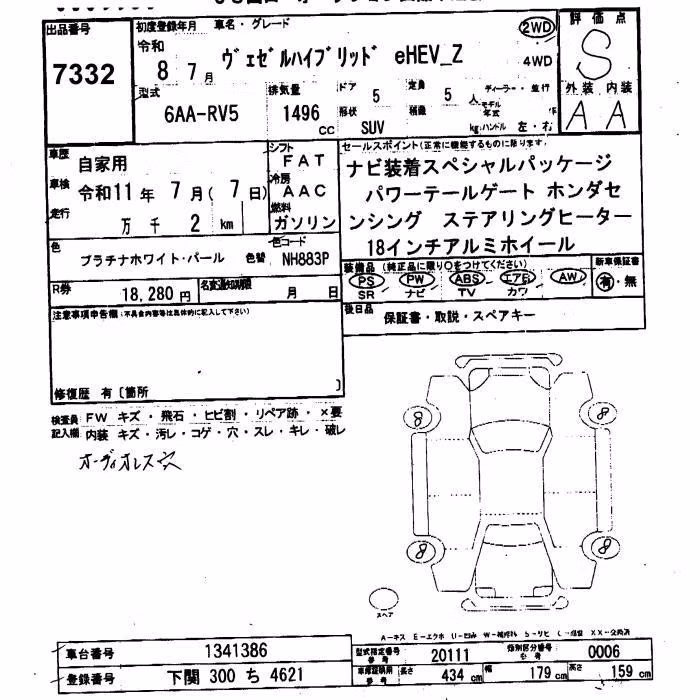 出品番号
7332
初度登録年月 車名・グレード
令和
8 7月
ヴェゼルハイブリッド eHEV_Z
2WD
4WD
評価点
S
外装 内装
A A
型式
6AA-RV5
排気量
1496
cc
ドア
5
定員
5
人
形状
SUV
積載
kg
ディーラー・並行
モデル
年式
年
ハンドル 左・右
車歴
自家用
車検
令和11年 7月( 7日)
走行
万 千 2 km
シフト
FAT
冷房
AAC
燃料
ガソリン
セールスポイント(正常に機能するものに限ります。
ナビ装着スペシャルパッケージ
パワーテールゲート ホンダセ
ンシング ステアリングヒーター
18インチアルミホイール
色
プラチナホワイト・パール
色替
色コード
NH883P
R券
18,280円
名変通知期限
月 日
装備品 (純正品に限り○をつけてください)
PS PW ABS エアB AW
SR ナビ TV カワ
新車保証書
有・無
後日品
保証書・取説・スペアキー
注意事項申告欄(不具合内容等は具体的に記入して下さい)
修復歴 有〔箇所 〕
検査員 FW キズ・飛石・ヒビ割・リペア跡・×要
記入欄 内装 キズ・汚レ・コゲ・穴・スレ・キレ・破レ
オーディオレス☆
8 8
8 8
スペア
A-キズ E-エクボ U-凹み
車台番号 1341386
登録番号 下関 300 ち 4621
型式指定番号
参考
20111
類別区分番号
参考
0006
長さ 434 cm 幅 179 cm 高さ 159 cm